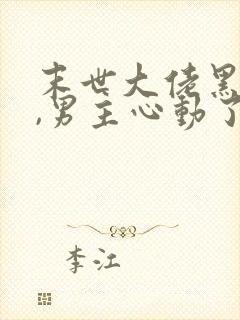 末世大佬黑
,男主心动了
李江